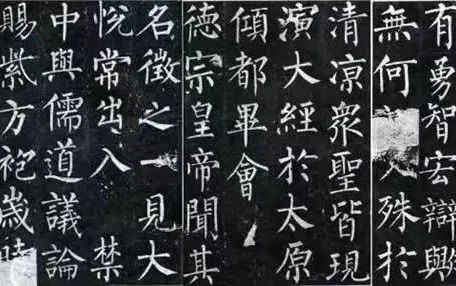 有勇智宏辯歟
無何殊於
清涼衆聖皆現
演大經於太原
傾都畢會
德宗皇帝聞其
名徵之一見大
悅常出入 禁
中與儒道議論
賜紫方袍歲時